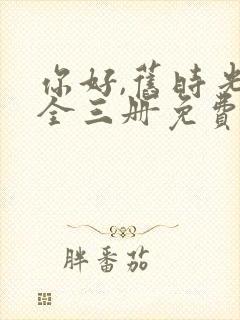 你好,舊時光
全三册免費
胖番茄